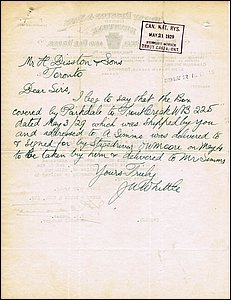 CAN. NAT. RYS.
MAY 31 1929
TROUT CREEK, ONT.
Mr H Disston & Sons
Toronto
Dear Sirs,
I beg to say that the Box
covered by Parkdale to Trout Creek W/B 225
dated May 3/29 which was shipped by you
and addressed to A Simms was delivered to
& signed for by Stagedriver on May 4
to be taken by him & delivered to Mr Simms
Yours Truly